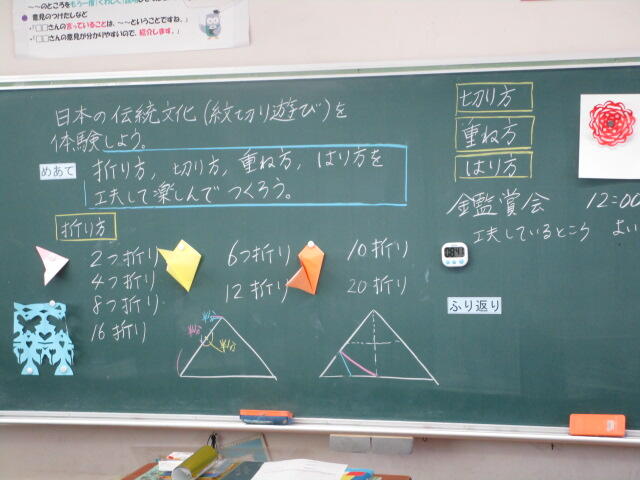 ～～のところをもう一度くわしく説明し
意見のつけたしなど
・「□□さんの言っていることは、～～ということですね。」
・「□□さんの意見が分かりやすいので、紹介します。」
日本の伝統文化(紋切り遊び)を
体験しよう。
めあて
折り方，切り方，重ね方，はり方を
工夫して楽しんでつくろう。
折り方
2つ折り
4つ折り
8つ折り
16折り
6つ折り
12折り
10折り
20折り
切り方
重ね方
はり方
鑑賞会 12:00
工夫しているところ よい
ふり返り